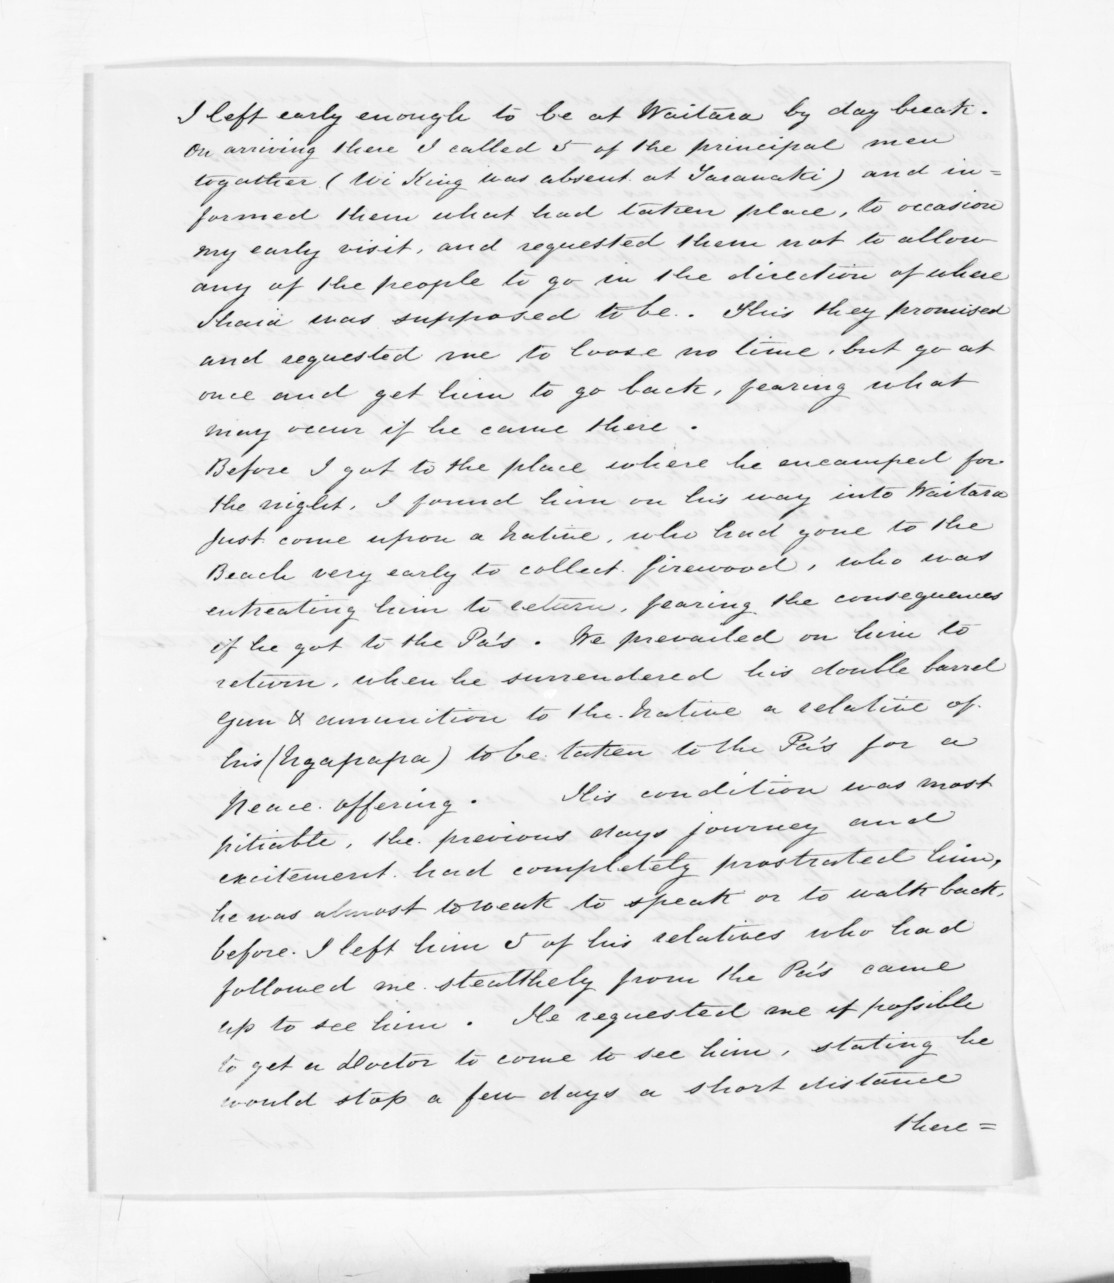 I left early enough to be at Waitara by day break.
On arriving there I called 5 of the principal men
together (Wi King was absent at Taranaki) and in=
formed them what had taken place, to occasion
my early visit, and requested them not to allow
any of the people to go in the direction of where
Ihaia was supposed to be. This they promised
and requested me to loose no time, but go at
once and get him to go back, fearing what
may occur if he came there.
Before I got to the place where he encamped for
the night, I found him on his way into Waitara
Just come upon a Native, who had gone to the
Beach very early to collect firewood, who was
entreating him to return, fearing the consequences
if he got to the Pa's. We prevailed on him to
return, when he surrendered his double barrel
Gun & amunition to the Native a relative of
his (Ngapapa) to be taken to the Pa's for a
Peace offering. His condition was most
pitiable, the previous days journey and
excitement had completely prostrated him,
he was almost to weak to speak or to walk back,
before I left him 5 of his relatives who had
followed me stealthely from the Pa's came
up to see him. He requested me if possible
to get a Doctor to come to see him, stating he
would stop a few days a short distance
there=